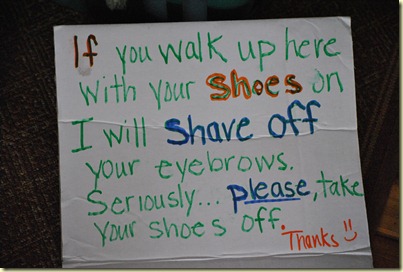 If you walk up here
with your shoes on
I will shave off
your eyebrows.
Seriously... please, take
your shoes off.
Thanks